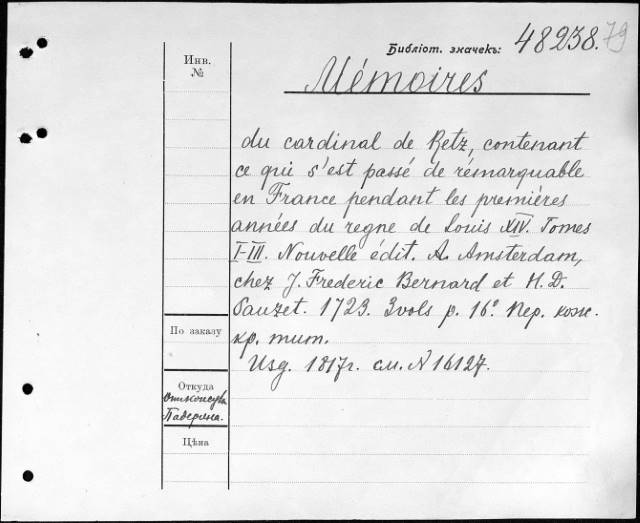 Библіот. значекъ: 48238.79
Инв.
№
Mémoires
du cardinal de Retz, contenant
ce qui s'est passé de rémarquable
en France pendant les premiéres
années du regne de Louis XIV. Tomes
I-III. Nouvelle édit. A. Amsterdam,
chez J. Frederic Bernard et H. D.
Sauzet. 1723. 3 vols p. 16°. Пер. кож.
кр. тит.
Изд. 1817г. см. N 16127.
По заказу
Откуда
Отъ консула
Падерина.
Цѣна